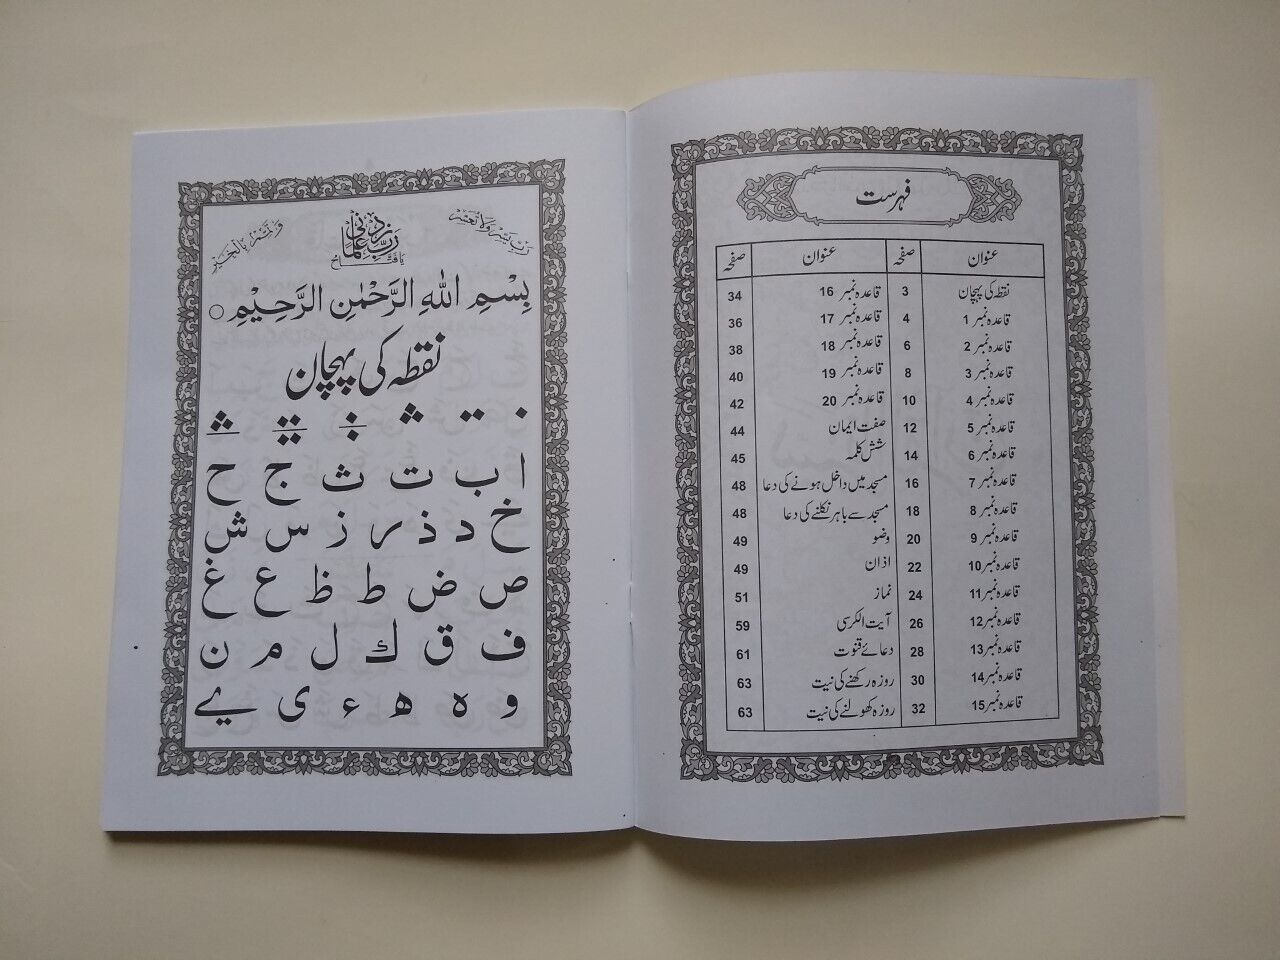 فہرست
عنوان صفحہ عنوان صفحہ
نقطہ کی پہچان 3 قاعدہ نمبر 16 34
قاعدہ نمبر 1 4 قاعدہ نمبر 17 36
قاعدہ نمبر 2 6 قاعدہ نمبر 18 38
قاعدہ نمبر 3 8 قاعدہ نمبر 19 40
قاعدہ نمبر 4 10 قاعدہ نمبر 20 42
قاعدہ نمبر 5 12 صفت ایمان 44
قاعدہ نمبر 6 14 شش کلمہ 45
قاعدہ نمبر 7 16 مسجد میں داخل ہونے کی دعا 48
قاعدہ نمبر 8 18 مسجد سے باہر نکلنے کی دعا 48
قاعدہ نمبر 9 20 وضو 49
قاعدہ نمبر 10 22 اذان 49
قاعدہ نمبر 11 24 نماز 51
قاعدہ نمبر 12 26 آیت الکرسی 59
قاعدہ نمبر 13 28 دعائے قنوت 61
قاعدہ نمبر 14 30 روزہ رکھنے کی نیت 63
قاعدہ نمبر 15 32 روزہ کھولنے کی نیت 63
رَبِّ يَسِّرْ وَلَا تُعَسِّرْ رَبِّ زِدْنِي عِلْمًا وَتَمِّمْ بِالْخَيْرِ
يَا فَتَّاحُ
بِسْمِ اللهِ الرَّحْمٰنِ الرَّحِيْمِ ○
نقطہ کی پہچان
ا ب ت ث ج ح
خ د ذ ر ز س ش
ص ض ط ظ ع غ
ف ق ك ل م ن
و ه ھ ء ی ے